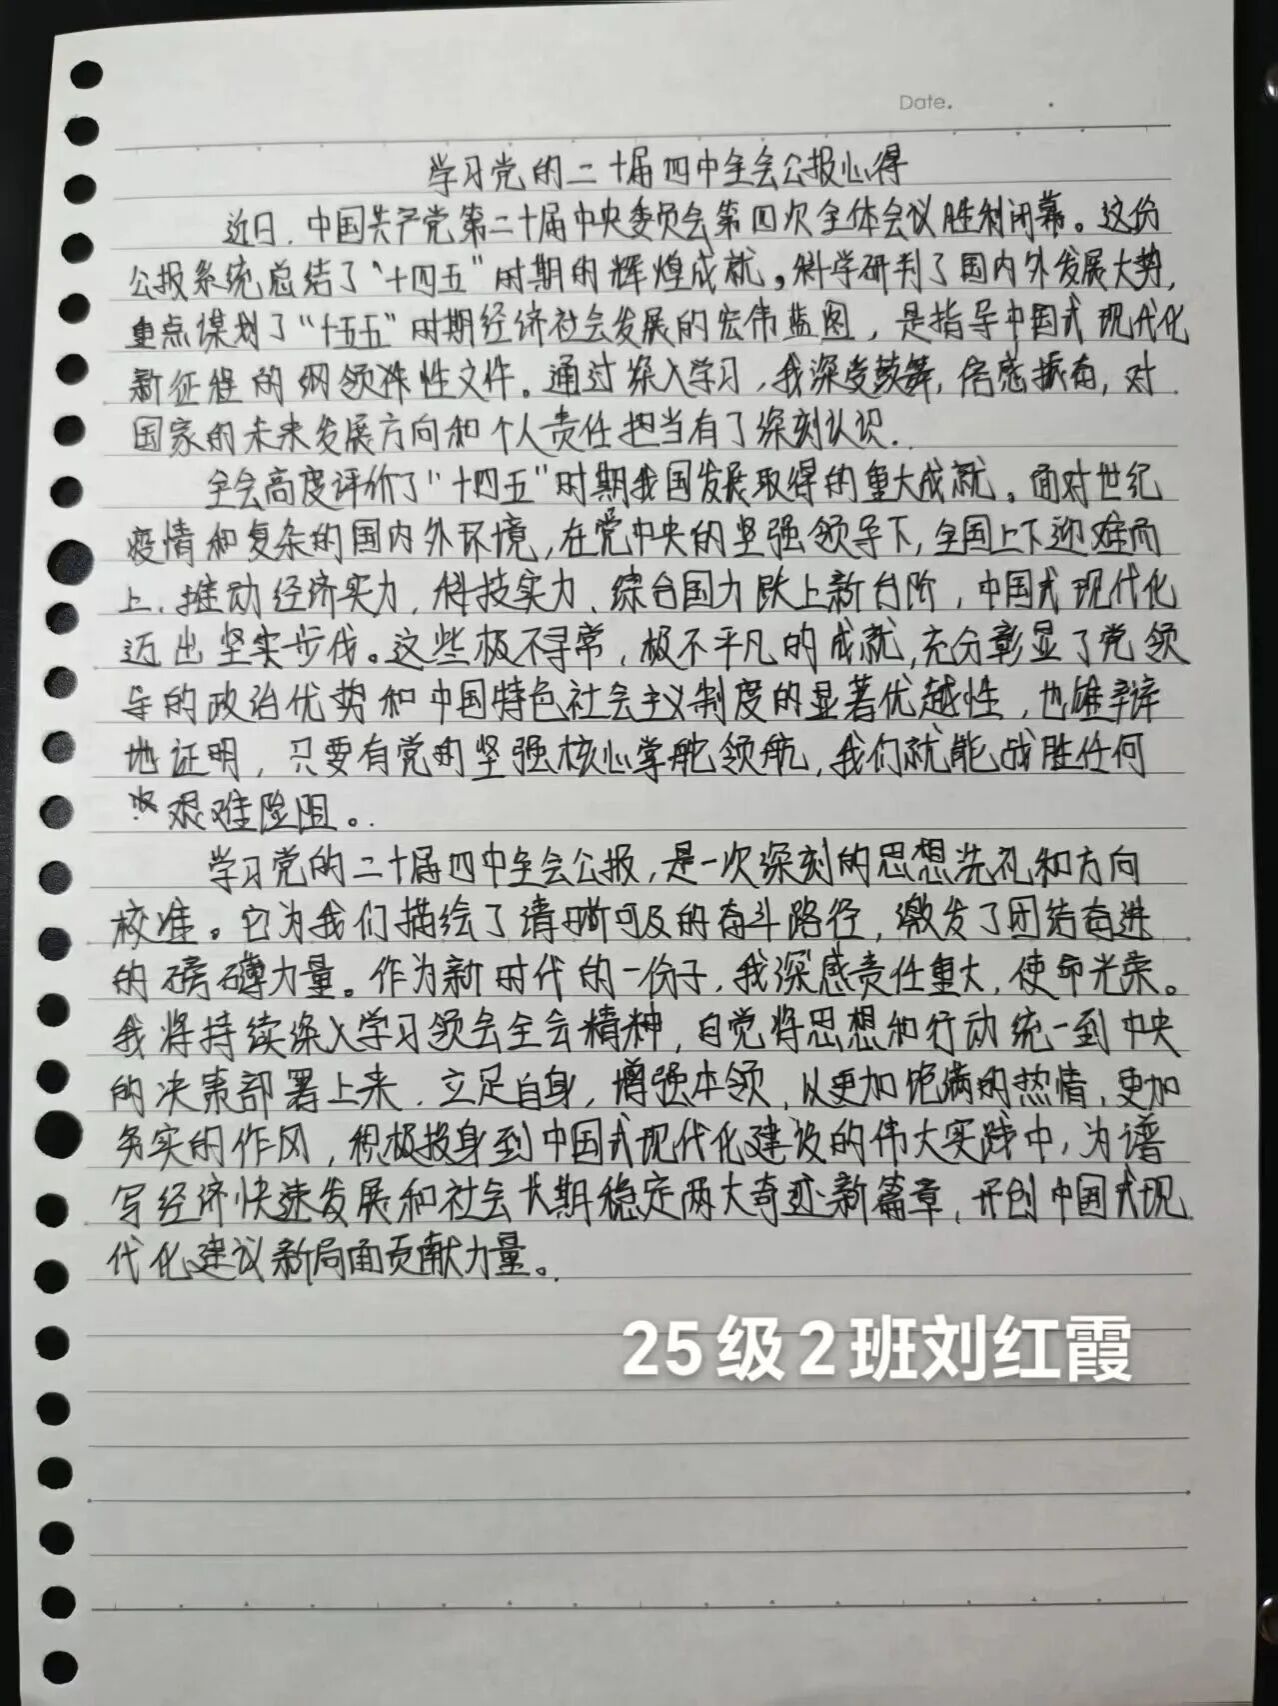 Date.
学习党的二十届四中全会公报心得
近日,中国共产党第二十届中央委员会第四次全体会议胜利闭幕。这份
公报系统总结了“十四五”时期的辉煌成就,科学研判了国内外发展大势,
重点谋划了“十五五”时期经济社会发展的宏伟蓝图,是指导中国式现代化
新征程的纲领性文件。通过深入学习,我深受鼓舞,倍感振奋,对
国家的未来发展方向和个人责任担当有了深刻认识.
全会高度评价了“十四五”时期我国发展取得的重大成就。面对世纪
疫情和复杂的国内外环境,在党中央的坚强领导下,全国上下迎难而
上,推动经济实力,科技实力、综合国力跃上新台阶,中国式现代化
迈出坚实步伐。这些极不寻常,极不平凡的成就,充分彰显了党领
导的政治优势和中国特色社会主义制度的显著优越性,也雄辩
地证明,只要有党的坚强核心掌舵领航,我们就能战胜任何
艰难险阻。
学习党的二十届四中全会公报,是一次深刻的思想洗礼和方向
校准。它为我们描绘了清晰可及的奋斗路径,激发了团结奋进
的磅礴力量。作为新时代的一份子,我深感责任重大,使命光荣。
我将持续深入学习领会全会精神,自觉将思想和行动统一到中央
的决策部署上来,立足自身,增强本领,以更加饱满的热情,更加
务实的作风,积极投身到中国式现代化建设的伟大实践中,为谱
写经济快速发展和社会长期稳定两大奇迹新篇章,开创中国式现
代化建议新局面贡献力量。
25级2班刘红霞